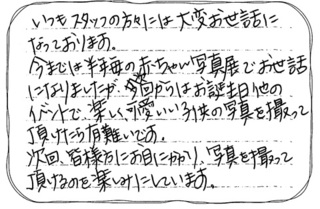 いつもスタッフの方々には大変お世話に
なっております。
今までは半年毎の赤ちゃん写真展でお世話
になりましたが、今回からはお誕生日他の
イベントで、楽しく、可愛いい子供の写真を撮って
頂けたら有難いです。
次回、皆様方にお目にかかり、写真を撮って
頂けるのを楽しみにしています。